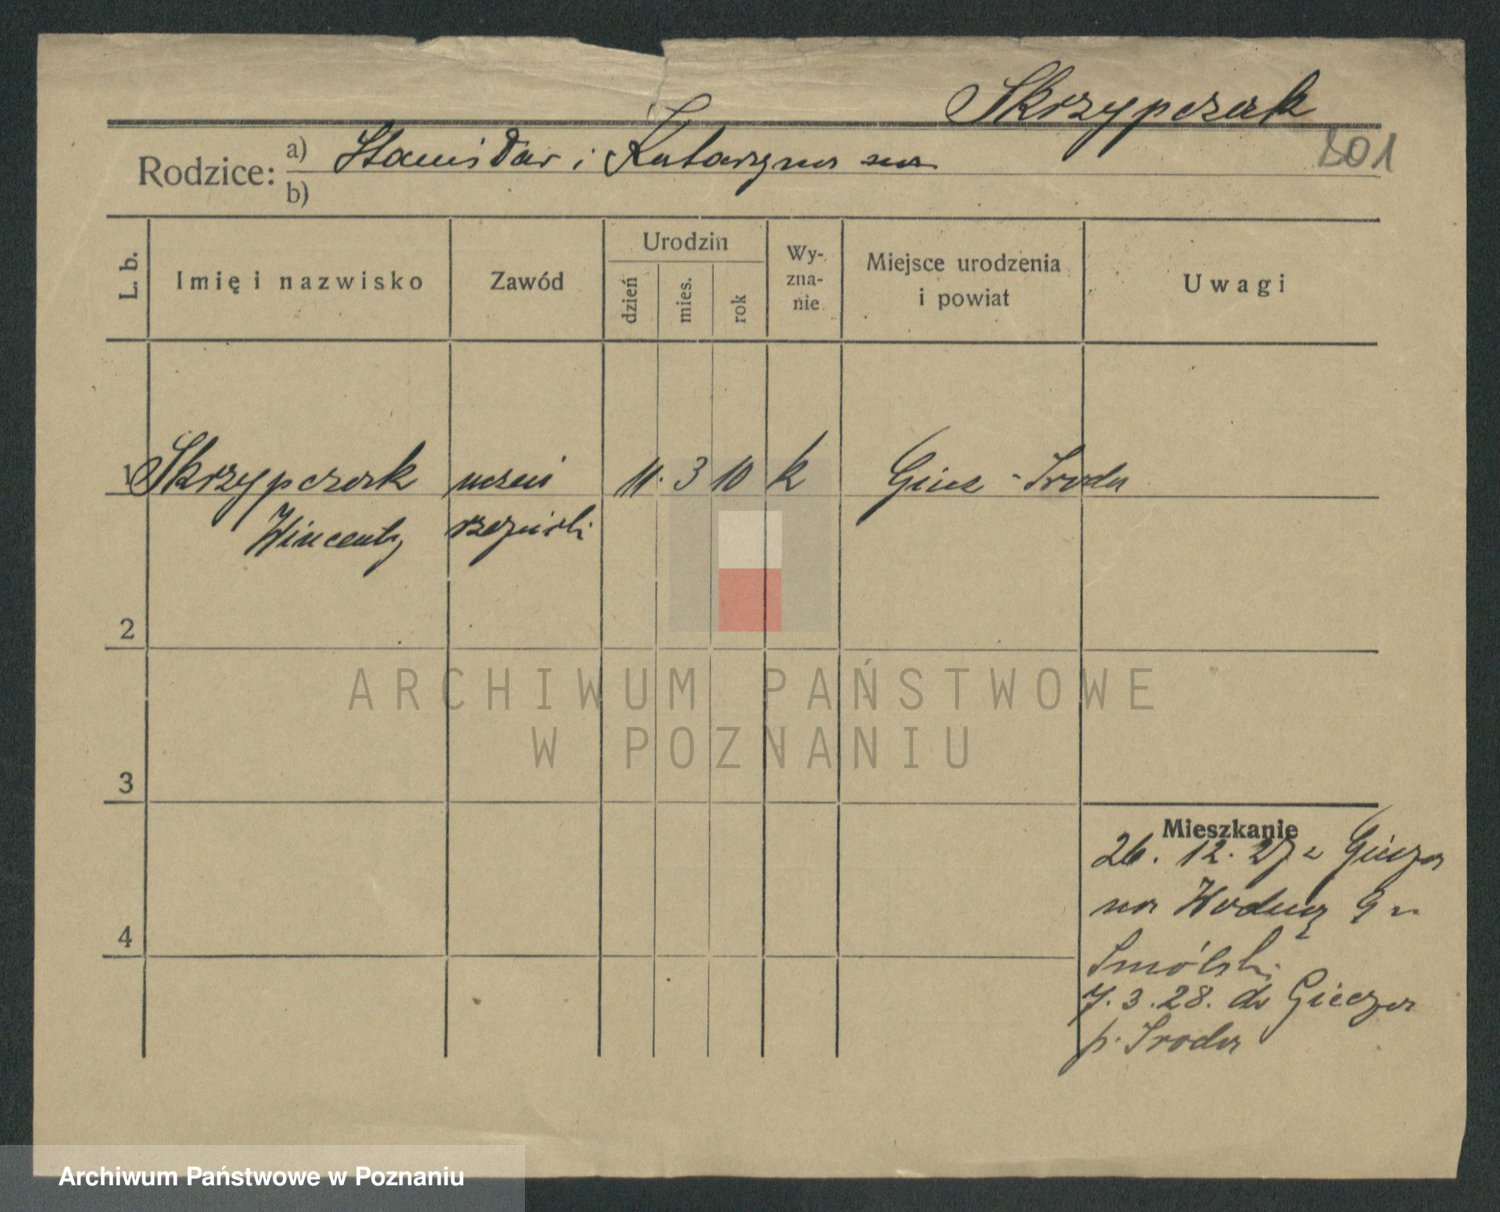 Skrzypczak
801
Rodzice: a) Stanisław i Katarzyna
b)
L. b.
Imię i nazwisko
Zawód
Urodzin
dzień
mies.
rok
Wy-
zna-
nie
Miejsce urodzenia
i powiat
Uwagi
1 Skrzypczak uczeń 11. 3 10 k Giecz - Środa
Wincenty rzeźnicki
2
3
4
Mieszkanie
26. 12. 27 z Giecza
na Wodną 9 u
Smólski
7. 3. 28. do Giecza
p. Środa
ARCHIWUM PAŃSTWOWE
W POZNANIU
Archiwum Państwowe w Poznaniu